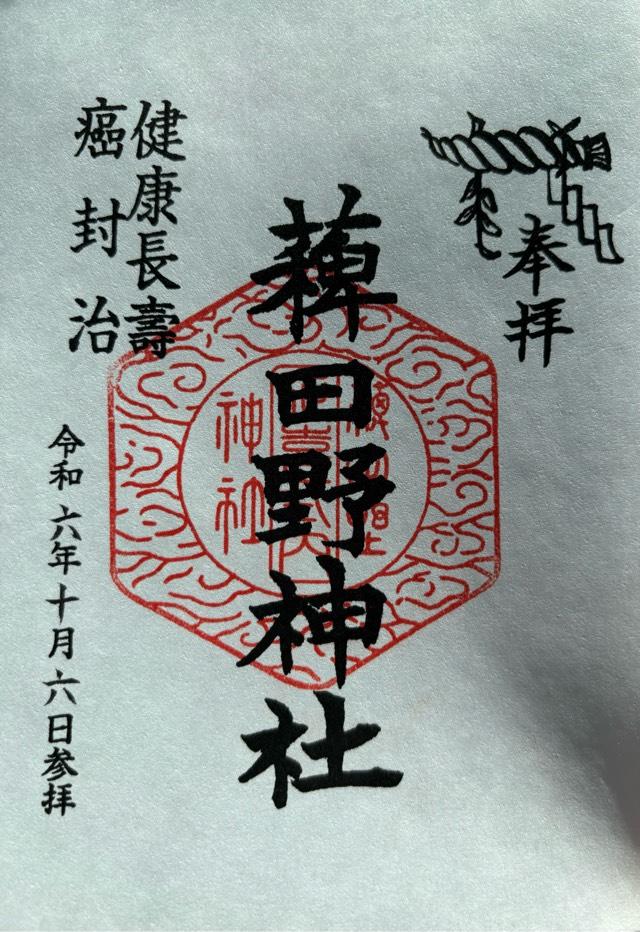 奉拝
薭田野神社
健康長壽
癌封治
令和六年十月六日参拝
神社